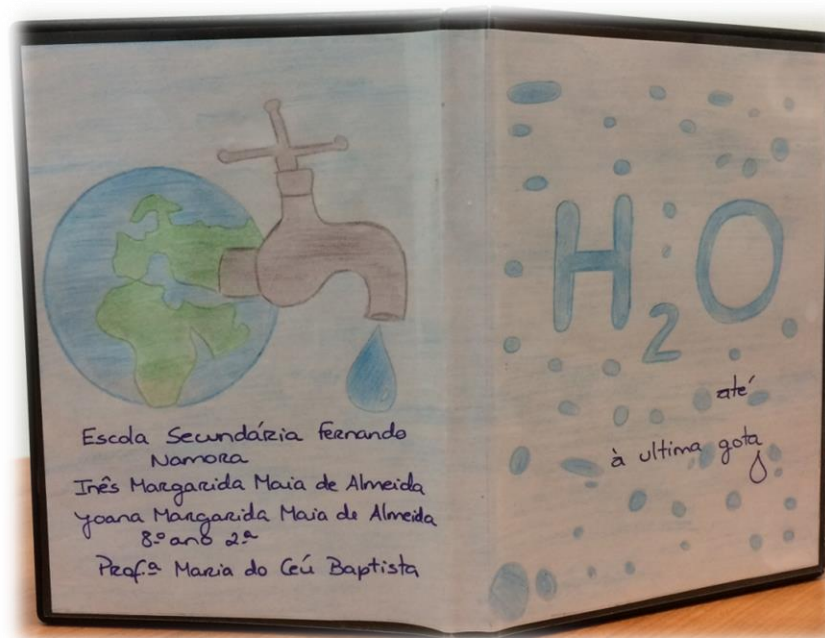 Escola Secundária Fernando
Namora
Inês Margarida Maia de Almeida
Yoana Margarida Maia de Almeida
8.º ano 2.ª
Prof.ª Maria do Céu Baptista
H2O
até
à ultima gota